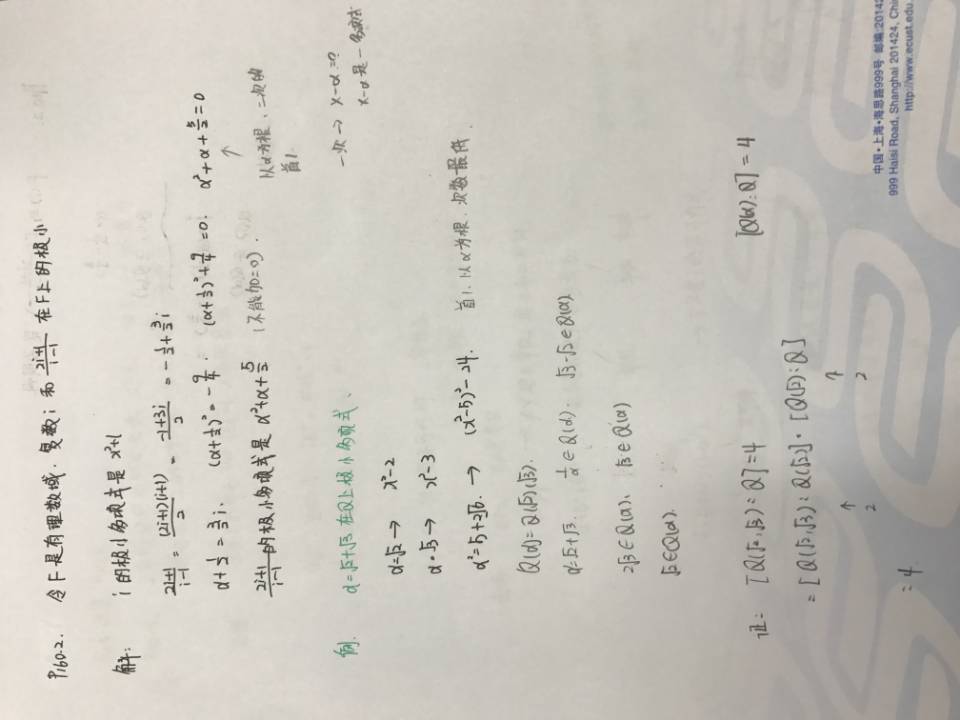 P160.2. 令F是有理数域. 复数i 和 (2i+1)/(i-1) 在F上的极小
解: i的极小多项式是 x²+1
(2i+1)/(i-1) = (2i+1)(i+1)/2 = (-1+3i)/2 = -1/2+3/2 i
α+1/2 = 3/2 i. (α+1/2)² = -9/4. (α+1/2)²+9/4 = 0. α²+α+5/2=0
↑
(2i+1)/(i-1) 的极小多项式是 α²+α+5/2 (不能加=0).
以α为根, 二次的
首1.
一次 → x-α=?
x-α是一多项式
例. α=√2+√3 在Q上极小多项式.
α=√2 → x²-2
α=√3 → x²-3
α²=5+2√6. → (x²-5)²-24. 首1, 以α为根, 次数最低.
Q(α)=Q(√2)(√3).
α=√2+√3. 1/α ∈ Q(α). √3-√2 ∈ Q(α)
2√3 ∈ Q(α). √3 ∈ Q(α)
√2 ∈ Q(α).
证: [Q(√2,√3):Q]=4 [Q(α):Q]=4
=[Q(√2,√3):Q(√2)]·[Q(√2):Q]
↑ ↑
2 2
=4
中国·上海·海思路999号 邮编:20142
999 Haisi Road, Shanghai 201424, Chi
http://www.ecust.edu.